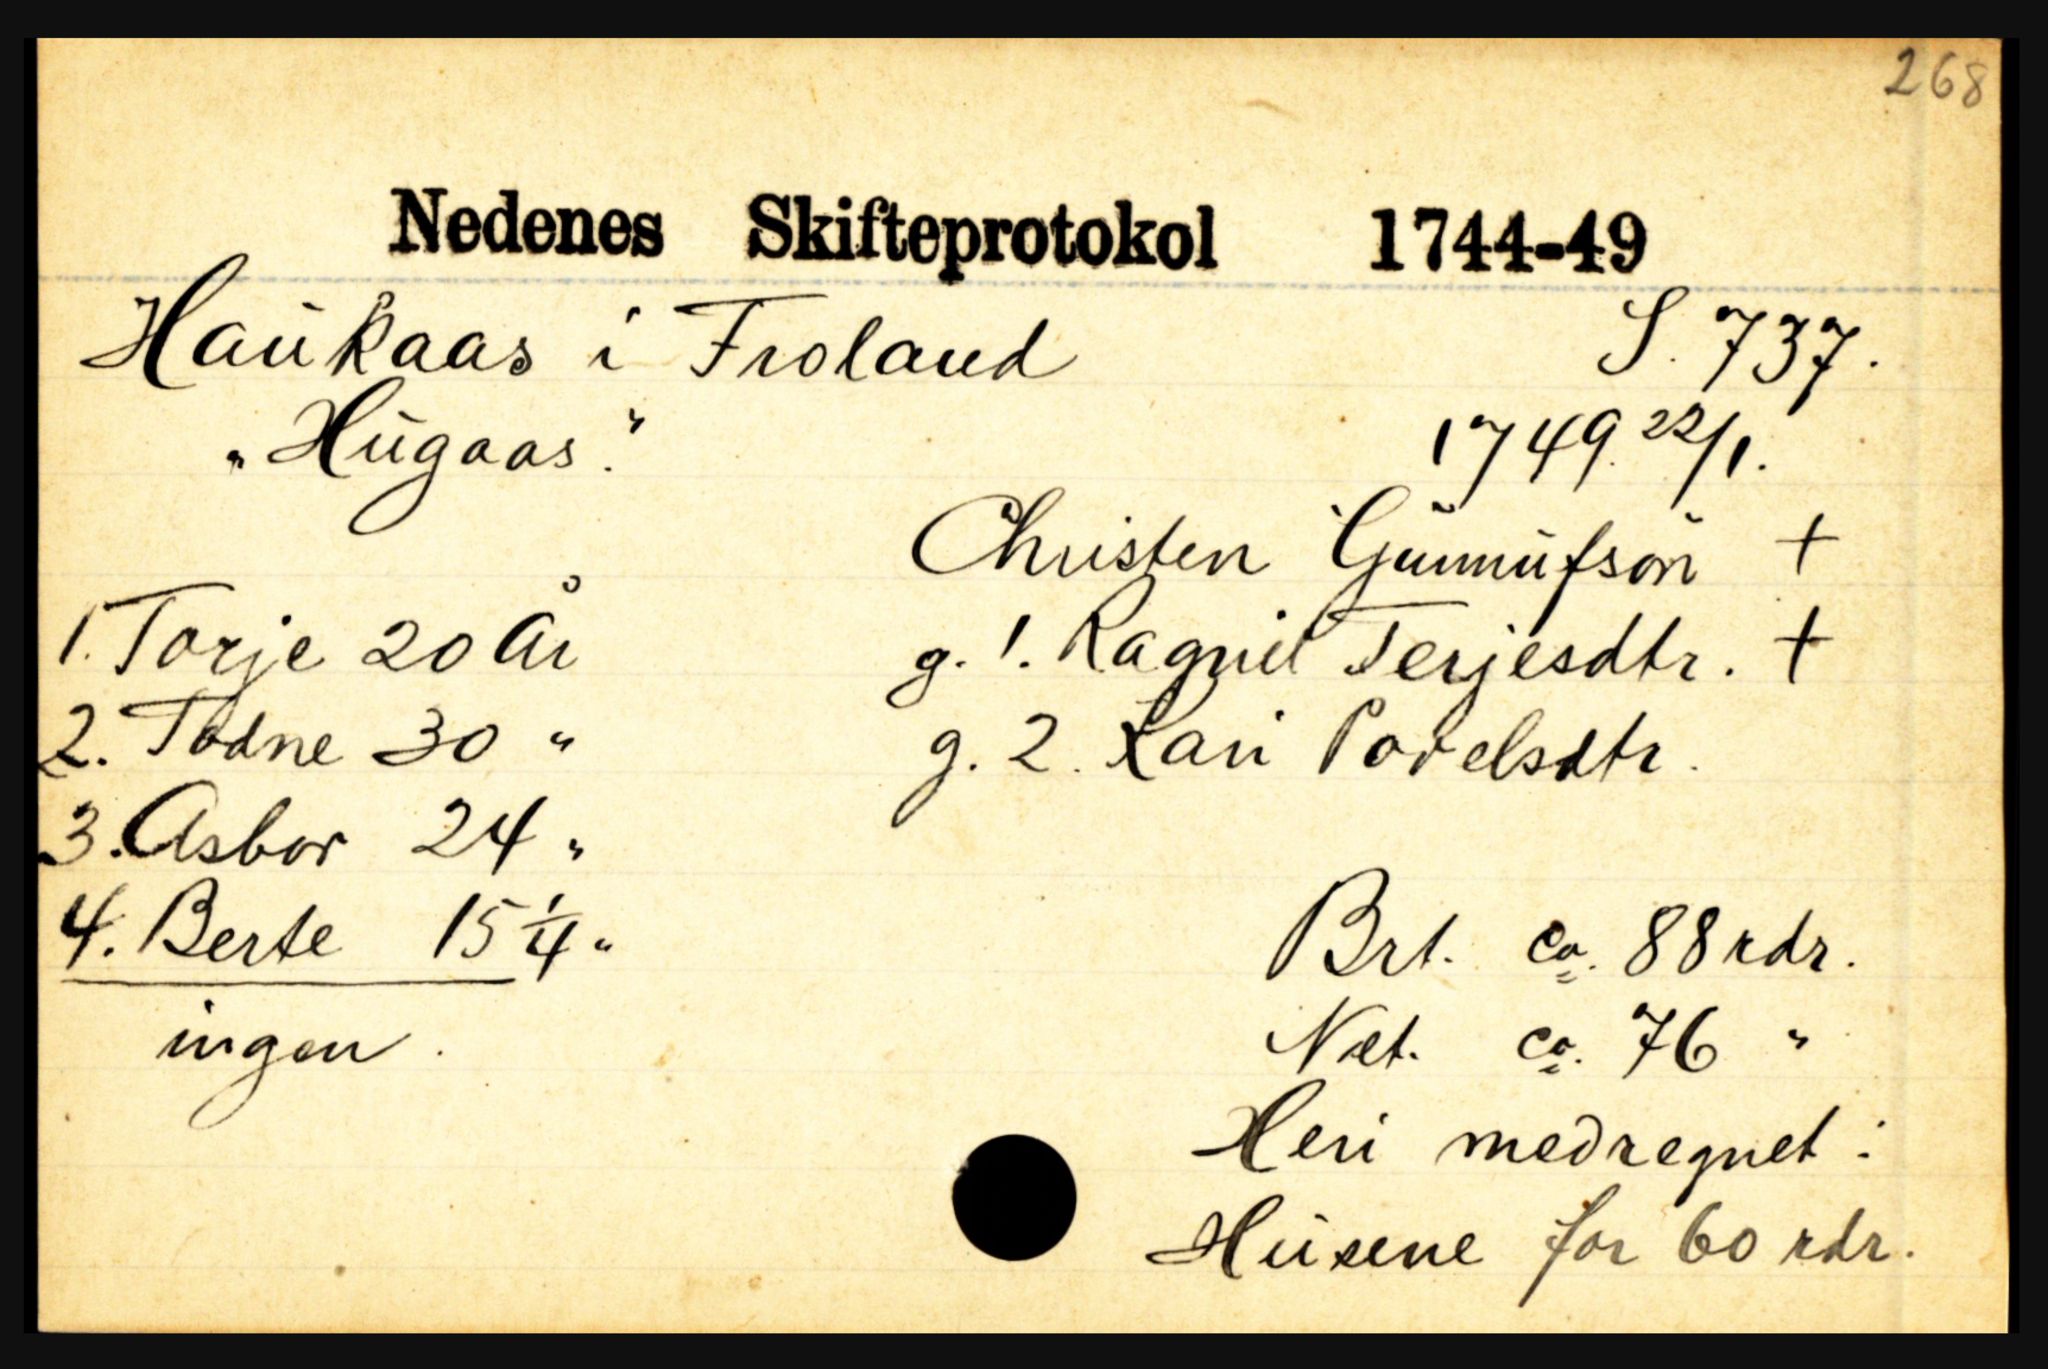 268
Nedenes Skifteprotokol 1744-49
Haukaas i Froland S. 737.
„Hugaas." 1749. 22/1.
Christen Gunnufsøn +
1. Torje 20 År g. 1. Ragnil Terjesdtr. +
2. Todne 30 " g. 2. Kari Povelsdtr.
3. Asbor 24 "
4. Berte 15 1/4 " Brt. ca. 88 rdr.
ingen. Net. ca. 76 "
Heri medregnet:
Husene for 60 rdr.